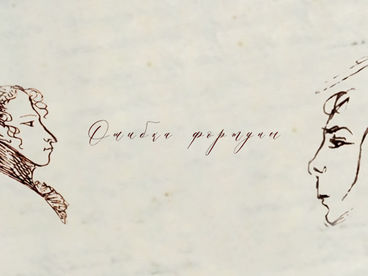 Ошибки фортуны